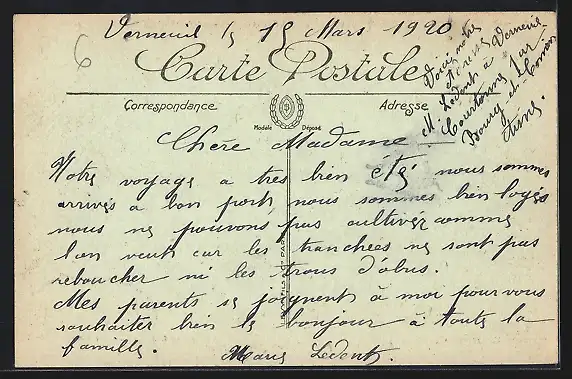 Verneuil le 15 Mars 1920
6
Voici notre
Adresse
M. Ledent à Verneuil
Courtonne Par
Bourg-et-Comin
Aisne.
Carte Postale
Correspondance
Adresse
Modèle Déposé
Chère Madame
Notre voyage a très bien été nous sommes
arrivés a bon port nous sommes bien logés
nous ne pouvons pas cultiver comme
l'on veut car les tranchées ne sont pas
reboucher ni les trous d'obus.
Mes parents se joignent à moi pour vous
souhaiter bien le bonjour à toute la
famille.
Marie Ledent.